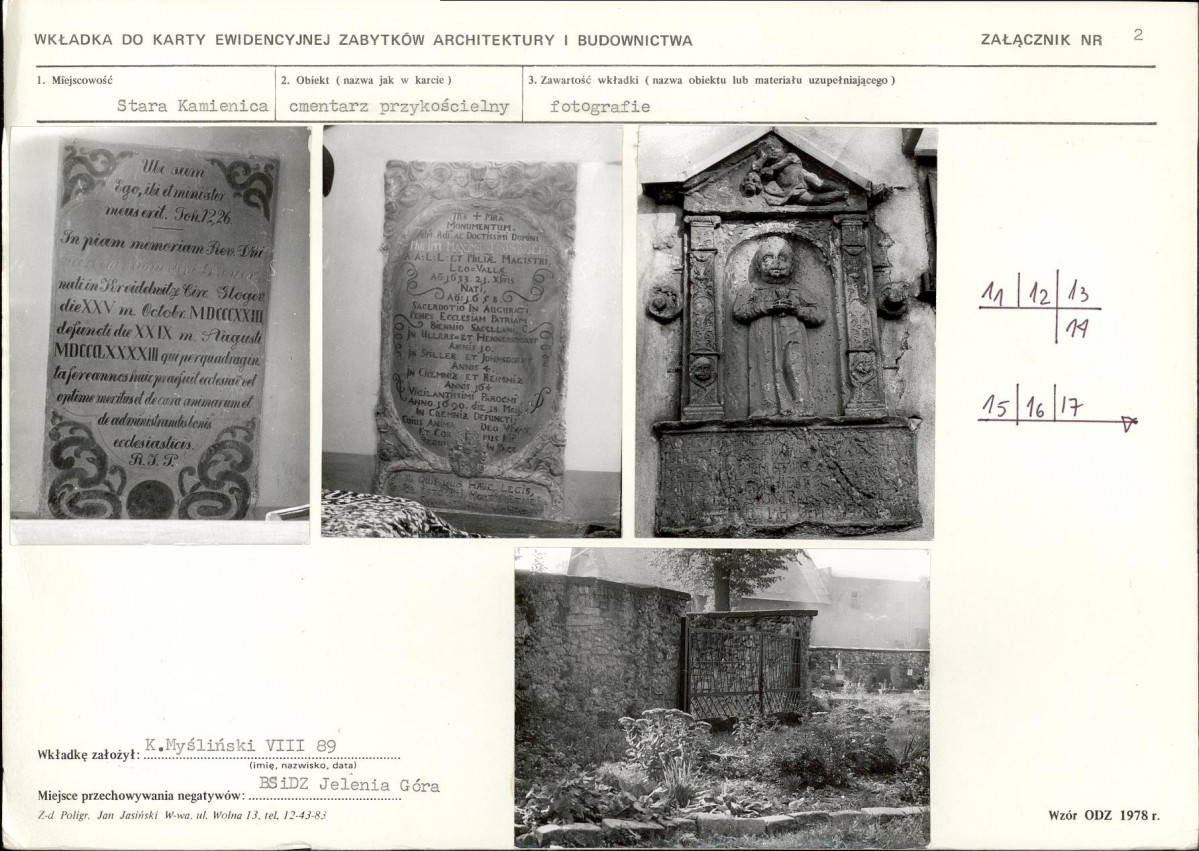 WKŁADKA DO KARTY EWIDENCYJNEJ ZABYTKÓW ARCHITEKTURY I BUDOWNICTWA
ZAŁĄCZNIK NR 2
1. Miejscowość
Stara Kamienica
2. Obiekt ( nazwa jak w karcie )
cmentarz przykościelny
3. Zawartość wkładki ( nazwa obiektu lub materiału uzupełniającego )
fotografie
Ubi sum
Ego, ibi et minister
meus erit. Joh. 12, 26.
In piam memoriam Rev. Dni
nati in Kreidelwitz Circ. Glogov.
die XXV m. Octobr. MDCCCXXIII
defuncti die XXIX m. Augusti
MDCCCLXXXXIII qui per quadragin
ta fere annos huic praefuit ecclesiae vel
optime meritus et de cura animarum et
de administrandis bonis
ecclesiasticis.
R. I. P.
MONUMENTUM,
ADM. RDI. AC DOCTISSIMI DOMINI
A: A: L: L: ET PHILIÆ MAGISTRI,
LEO=VALLÆ
Aō: 1633. 21. XBRIS
NATI,
Aō: 1658.
SACERDOTIO IN AUGURATI
PENES ECCLESIAM PATRIAM
BIENNIO SACELLANI
IN ULLERS= ET HENNERSDORF
ANNIS 10.
IN SPILLER ET JOHNSDORF
ANNIS 4.
IN CHEMNIZ ET REIMNIZ
ANNIS 16
VIGILANTISSIMI PAROCHI
ANNO 1690. DIE 18. MAIJ
IN CHEMNIZ DEFUNCTI,
CUIUS ANIMA DEO VIVAT
ET COR PUS
IN PACE
QUISQUIS HÆC LEGIS,
11 | 12 | 13
14
15 | 16 | 17
Wkładkę założył: K.Myśliński VIII 89
(imię, nazwisko, data)
Miejsce przechowywania negatywów: BSiDZ Jelenia Góra
Z-d Poligr. Jan Jasiński W-wa, ul. Wolna 13, tel. 12-43-83
Wzór ODZ 1978 r.